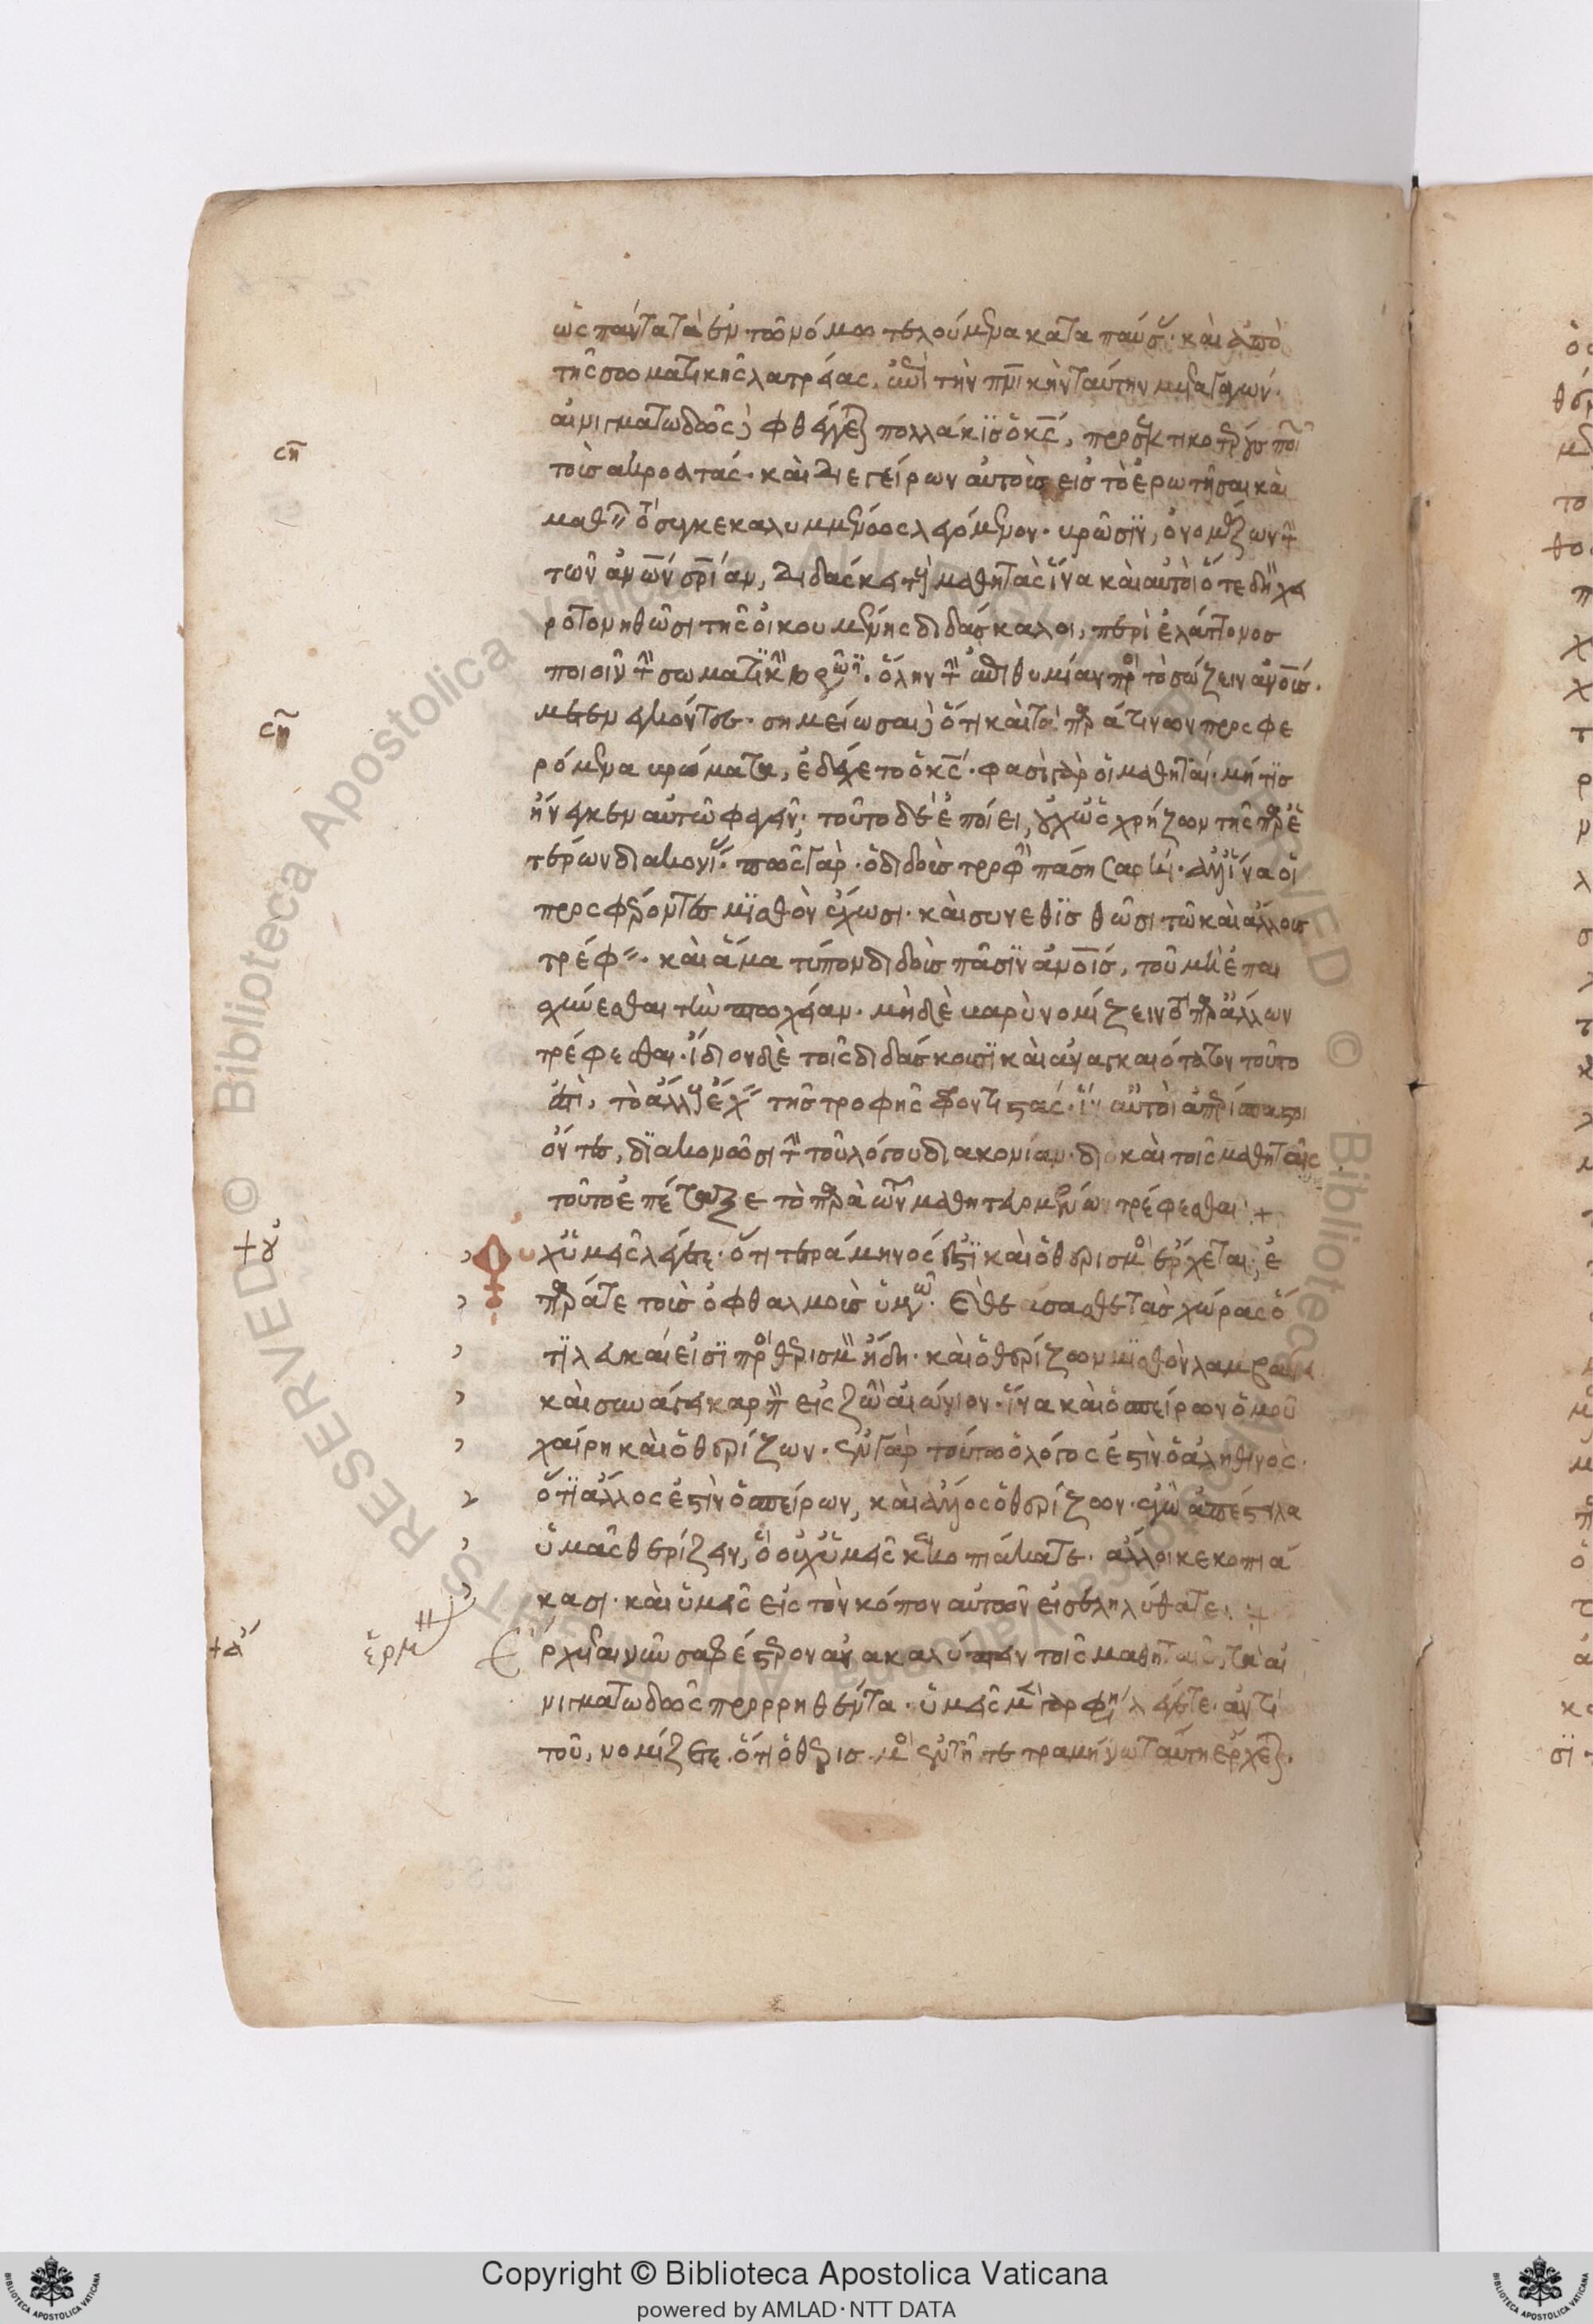 ὡς πάντα τὰ ἐν τῶ νόμω τελούμενα καταπαύσ. καὶ ἀπὸ
τῆς σωματικῆς λατρείας, ἐπὶ τὴν πνικὴν ταύτην μεταγαγών.
αἰνιγματωδῶς φθέγγεται πολλάκις ὁ κς, προσεκτικοτέρους ποι
τοὺς ἀκροατάς. καὶ διεγείρων αὐτοὺς εἰς τὸ ἐρωτῆσαι καὶ
μαθεῖν τὸ συγκεκαλυμμένως λεγόμενον. βρῶσιν, ὀνομάζων τὴν
τῶν ἀνων σριαν, διδάσκει τοὺς μαθητὰς ἵνα καὶ αὐτοὶ ὅτε δὴ χει
ροτονηθῶσι τῆς οἰκουμένης διδάσκαλοι, περὶ ἐλάττονος
ποιοῖν τὴν σωματικὴν βρῶσιν. ὅλην τὴν ἐπιθυμίαν πρὸς τὸ σώζειν ἀνους.
σημείωσαι ὅτι καὶ τὰ παρά τινων προσφε
ρόμενα βρώματα, ἐδέχετο ὁ κς. φασὶ γὰρ οἱ μαθηταί. μή τις
ἤνεγκεν αὐτῶ φαγεῖν; τοῦτο δὲ ἐποίει, οὐχ ὡς χρήζων τῆς παρ ἑ
τέρων διακονίας. πῶς γὰρ. ὁ διδοὺς τροφὴν πάση σαρκί. ἀλλ ἵνα οἱ
προσφέροντες μισθὸν ἔχωσι. καὶ συνεθισθῶσι τῶ καὶ ἄλλους
τρέφειν. καὶ ἅμα τύπον διδοὺς πᾶσιν ἀνοις, τοῦ μὴ ἐπαι
σχύνεσθαι τὴν πτωχείαν. μηδὲ βαρὺ νομίζειν τὸ παρ ἄλλων
τρέφεσθαι. ἴδιον δὲ τοῖς διδάσκουσι καὶ ἀναγκαιότατον τοῦτο
ἐστὶ, τὸ ἄλλους ἔχειν τῆς τροφῆς φροντιστάς. ἵν αὐτοὶ ἀπερίσπαστοι
ὄντες, διακονῶσι τὴν τοῦ λόγου διακονίαν. διὸ καὶ τοῖς μαθηταῖς
τοῦτο ἐπέταξε τὸ παρὰ τῶν μαθητευομένων τρέφεσθαι +
Ουχ ὑμεῖς λέγετε. ὅτι τετράμηνός ἐστι καὶ ὁ θερισμὸς ἔρχεται; ἐ
πάρατε τοὺς ὀφθαλμοὺς ὑμῶν. καὶ θεάσασθε τὰς χώρας ὅ
τι λευκαί εἰσι πρὸς θερισμὸν ἤδη. καὶ ὁ θερίζων μισθὸν λαμβάνει
καὶ συνάγει καρπὸν εἰς ζωὴν αἰώνιον. ἵνα καὶ ὁ σπείρων ὁμοῦ
χαίρη καὶ ὁ θερίζων. ἐν γὰρ τούτω ὁ λόγος ἐστὶν ὁ ἀληθινὸς.
ὅτι ἄλλος ἐστὶν ὁ σπείρων, καὶ ἄλλος ὁ θερίζων. ἐγὼ ἀπέστειλα
ὑμᾶς θερίζειν, ὃ οὐχ ὑμεῖς κεκοπιάκατε. ἄλλοι κεκοπιά
κασι. καὶ ὑμεῖς εἰς τὸν κόπον αὐτῶν εἰσεληλύθατε. +
Ἄρχεται νῦν σαφέστερον ἀνακαλύπτειν τοῖς μαθηταῖς, τὰ αἰ
νιγματωδῶς προρρηθέντα. ὑμεῖς μὲν γὰρ φησι λέγετε. ἀντὶ
τοῦ, νομίζετε. ὅτι ὁ θερισμὸς ἐν τῆ τετραμήνω ταύτη ἔρχεται.